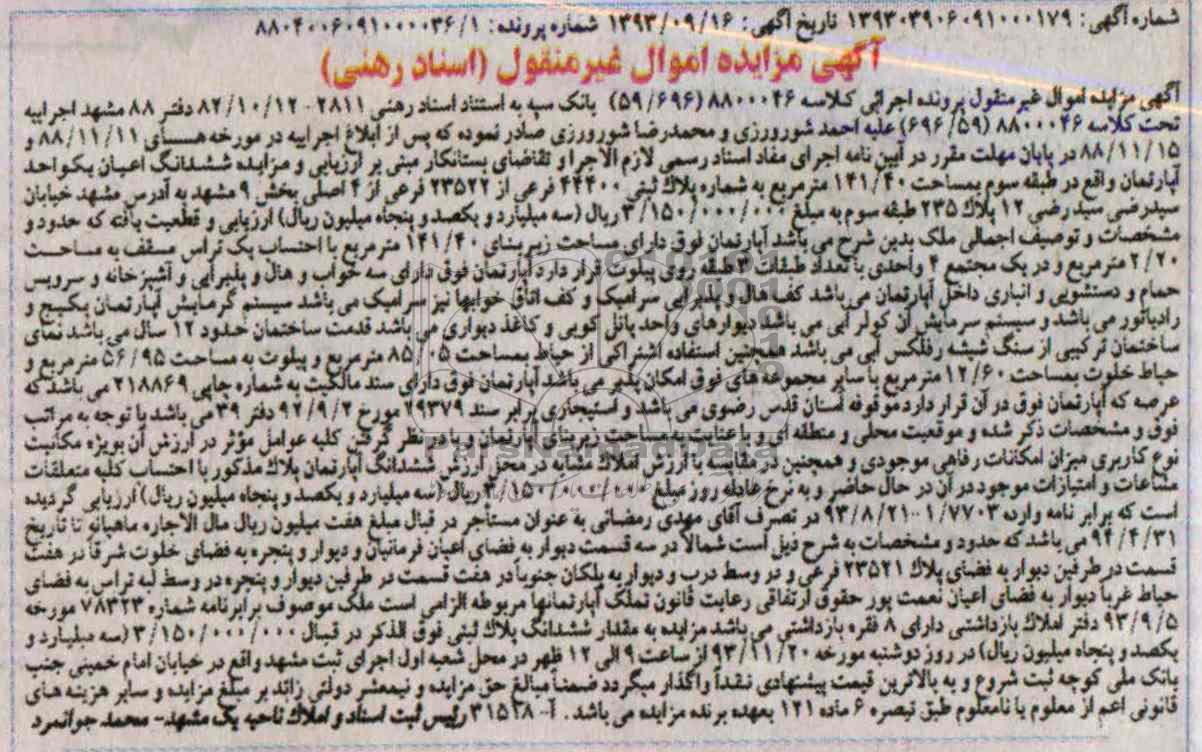 شماره آگهی: ۱۳۹۳۰۳۹۰۶۰۹۱۰۰۰۱۷۹ تاریخ آگهی: ۱۳۹۳/۰۹/۱۶ شماره پرونده: ۸۸۰۴۰۰۶۰۹۱۰۰۰۰۳۶/۱
آگهی مزایده اموال غیرمنقول (اسناد رهنی)
آگهی مزایده اموال غیرمنقول پرونده اجرائی کلاسه ۸۸۰۰۰۴۶ (۵۹/۶۹۶) بانک سپه به استناد اسناد رهنی ۲۸۱۱ - ۸۲/۱۰/۱۲ دفتر ۸۸ مشهد اجراییه
تحت کلاسه ۸۸۰۰۰۴۶ (۶۹۶/۵۹) علیه احمد شورورزی و محمدرضا شورورزی صادر نموده که پس از ابلاغ اجراییه در مورخه هسای ۸۸/۱۱/۱۱ و
۸۸/۱۱/۱۵ در پایان مهلت مقرر در آیین نامه اجرای مفاد اسناد رسمی لازم الاجرا و تقاضای بستانکار مبنی بر ارزیابی و مزایده ششدانگ اعیان یکواحد
آپارتمان واقع در طبقه سوم بمساحت ۱۴۱/۴۰ مترمربع به شماره پلاک ثبتی ۴۴۴۰۰ فرعی از ۲۳۵۲۲ فرعی از ۴ اصلی بخش ۹ مشهد به آدرس مشهد خیابان
سیدرضی سیدرضی ۱۲ پلاک ۲۳۵ طبقه سوم به مبلغ ۳/۱۵۰/۰۰۰/۰۰۰ ریال (سه میلیارد و یکصد و پنجاه میلیون ریال) ارزیابی و قطعیت یافته که حدود و
مشخصات و توصیف اجمالی ملک بدین شرح می باشد آپارتمان فوق دارای مساحت زیربنای ۱۴۱/۴۰ مترمربع با احتساب یک تراس مسقف به مساحت
۲/۲۰ مترمربع و در یک مجتمع ۴ واحدی با تعداد طبقات ۴ طبقه روی پیلوت قرار دارد آپارتمان فوق دارای سه خواب و هال و پذیرایی و آشپزخانه و سرویس
حمام و دستشویی و انباری داخل آپارتمان می باشد کف هال و پذیرایی سرامیک و کف اتاق خوابها نیز سرامیک می باشد سیستم گرمایش آپارتمان پکیج و
رادیاتور می باشد و سیستم سرمایش آن کولر آبی می باشد دیوارهای واحد پانل کوبی و کاغذ دیواری می باشد قدمت ساختمان حدود ۱۲ سال می باشد نمای
ساختمان ترکیبی از سنگ شیشه رفلکس آبی می باشد همچنین استفاده اشتراکی از حیاط بمساحت ۸۵/۰۵ مترمربع و پیلوت به مساحت ۵۶/۹۵ مترمربع و
حیاط خلوت بمساحت ۱۲/۶۰ مترمربع با سایر مجموعه های فوق امکان پذیر می باشد آپارتمان فوق دارای سند مالکیت به شماره چاپی ۲۱۸۸۶۹ می باشد که
عرصه که آپارتمان فوق در آن قرار دارد موقوفه آستان قدس رضوی می باشد و استیجاری برابر سند ۲۹۳۷۹ مورخ ۹۲/۹/۲ دفتر ۳۹ می باشد با توجه به مراتب
فوق و مشخصات ذکر شده و موقعیت محلی و منطقه ای و با عنایت به مساحت زیربنای آپارتمان و با در نظر گرفتن کلیه عوامل مؤثر در ارزش آن بویژه مکانیت
نوع کاربری میزان امکانات رفاهی موجودی و همچنین در مقایسه با ارزش املاک مشابه در محل ارزش ششدانگ آپارتمان پلاک مذکور با احتساب کلیه متعلقات
مشاعات و امتیازات موجود در آن در حال حاضر و به نرخ عادله روز مبلغ ۳/۱۵۰/۰۰۰/۰۰۰ ریال (سه میلیارد و یکصد و پنجاه میلیون ریال) ارزیابی گردیده
است که برابر نامه وارده ۱/۷۷۰۳-۹۳/۸/۲۱ در تصرف آقای مهدی رمضانی به عنوان مستأجر در قبال مبلغ هفت میلیون ریال مال الاجاره ماهیانه تا تاریخ
۹۴/۴/۳۱ می باشد که حدود و مشخصات به شرح ذیل است شمالاً در سه قسمت دیوار به فضای اعیان فرمانیان و دیوار و پنجره به فضای خلوت شرقاً در هفت
قسمت در طرفین دیوار به فضای پلاک ۲۳۵۲۱ فرعی و در وسط درب و دیوار به پلکان جنوباً در هفت قسمت در طرفین دیوار و پنجره در وسط لبه تراس به فضای
حیاط غرباً دیوار به فضای اعیان نعمت پور حقوق ارتفاقی رعایت قانون تملک آپارتمانها مربوطه الزامی است ملک موصوف برابرنامه شماره ۷۸۳۲۳ مورخه
۹۳/۹/۵ دفتر املاک بازداشتی دارای ۸ فقره بازداشتی می باشد مزایده به مقدار ششدانگ پلاک ثبتی فوق الذکر در قبال ۳/۱۵۰/۰۰۰/۰۰۰ (سه میلیارد و
یکصد و پنجاه میلیون ریال) در روز دوشنبه مورخه ۹۳/۱۱/۲۰ از ساعت ۹ الی ۱۲ ظهر در محل شعبه اول اجرای ثبت مشهد واقع در خیابان امام خمینی جنب
بانک ملی کوچه ثبت شروع و به بالاترین قیمت پیشنهادی نقداً واگذار میگردد ضمناً مبالغ حق مزایده و نیمعشر دولتی زائد بر مبلغ مزایده و سایر هزینه های
قانونی اعم از معلوم یا نامعلوم طبق تبصره ۶ ماده ۱۲۱ بعهده برنده مزایده می باشد. آ-۳۱۵۲۸ رئیس ثبت اسناد و املاک ناحیه یک مشهد- محمد جوانمرد
ParsNamadData